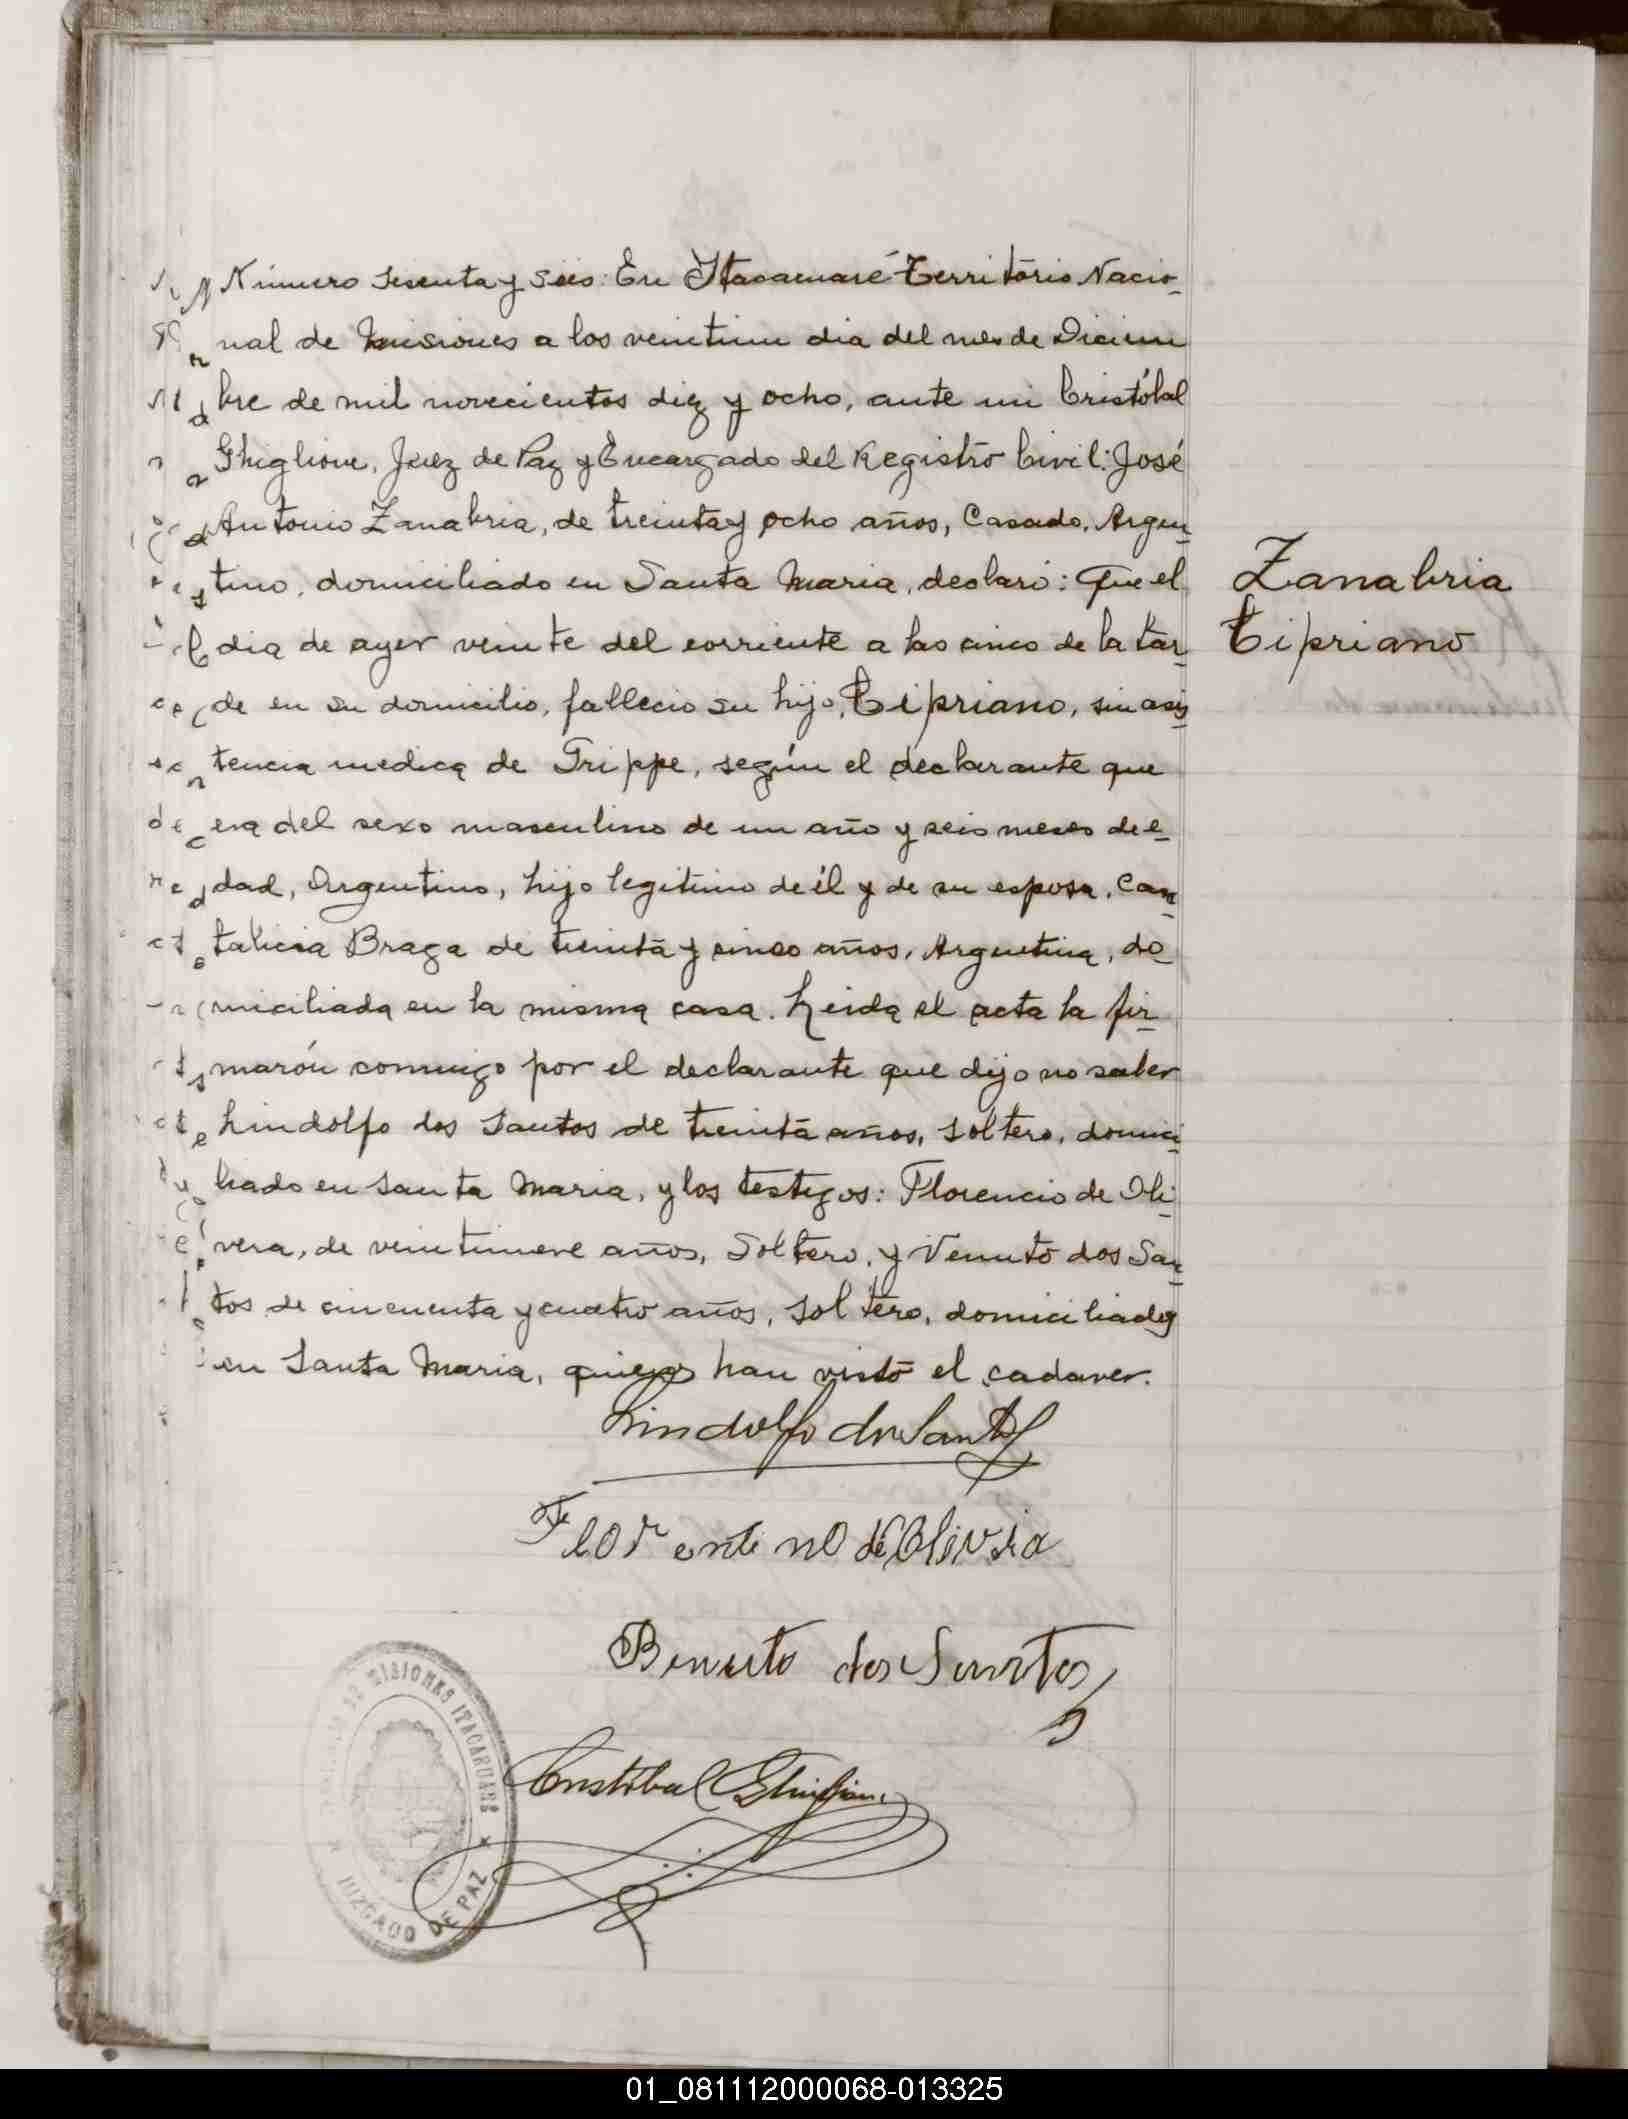 Número sesenta y seis: En Itacaruaré Territorio Nacio-
nal de Misiones a los veintiun dia del mes de Diciem
bre de mil novecientos diez y ocho, ante mi Cristóbal
Ghiglione, Juez de Paz y Encargado del Registro Civil: José
Antonio Zanabria, de treinta y ocho años, Casado, Argen-
tino, domiciliado en Santa Maria, declaró: Que el
dia de ayer veinte del corriente a las cinco de la tar-
de en su domicilio, fallecio su hijo, Cipriano, sin asis-
tencia medica de Grippe, según el declarante que
era del sexo masculino de un año y seis meses de e-
dad, Argentino, hijo legitimo de él y de su esposa, Can-
talicia Braga de treinta y cinco años, Argentina, do-
miciliada en la misma casa. Leida el acta la fir-
marón conmigo por el declarante que dijo no saber
Lindolfo dos Santos de treinta años, soltero, domici-
liado en Santa Maria, y los testigos: Florencio de Oli-
vera, de veintinueve años, Soltero, y Venuto dos San-
tos de cincuenta y cuatro años, soltero, domiciliados
en Santa Maria, quienes han visto el cadaver.
Zanabria
Cipriano
Lindolfo dos Santos
Florentino de Olivera
Benuto dos Santos
Cristóbal Ghiglione
DE MISIONES ITACARUARÉ
JUZGADO DE PAZ
01_081112000068-013325